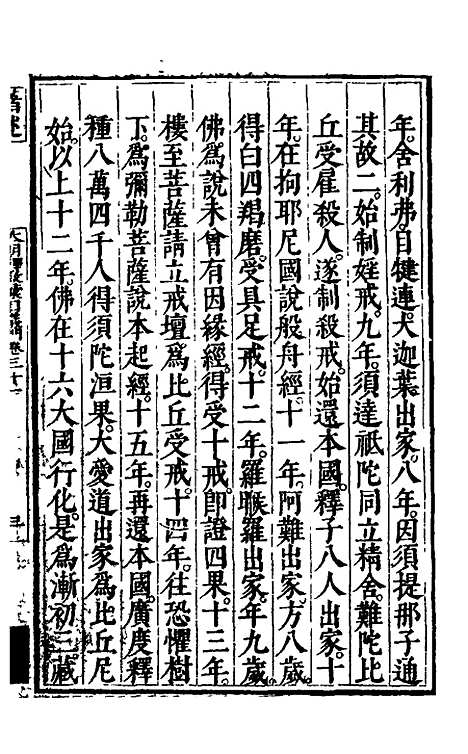 年。舍利弗。目犍連。大迦葉出家。八年。因須提那子通
其故二。始制婬戒。九年。須達祇陀同立精舍。難陀比
丘受雇殺人。遂制殺戒。始還本國。釋子八人出家。十
年。在拘耶尼國說般舟經。十一年。阿難出家。方八歲。
得白四羯磨。受具足戒。十二年。羅睺羅出家。年九歲。
佛爲說未曾有因緣經。得受十戒。即證四果。十三年。
樓至菩薩請立戒壇。爲比丘受戒。十四年。往恐懼樹
下。爲彌勒菩薩說本起經。十五年。再還本國。廣度釋
種八萬四千人得須陀洹果。大愛道出家爲比丘尼
始。以上十二年。佛在十六大國行化。是爲漸初三藏